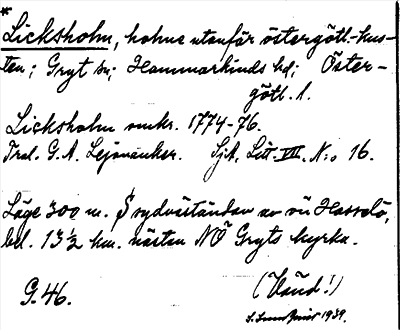 *
Licksholm, holme utanför östergötl.-kus-
ten; Gryt sn; Hammarkinds hd; Öster-
götl. l.
Licksholm omkr. 1774-76.
Trol. G. A. Lejonanker. SjA, Litt. VII, N:o 16.
Läge 300 m. S sydväständan av ön Hasselö,
bel. 13½ km. nästan NÖ Gryts kyrka.
G. 46. (Vänd!)
1939.